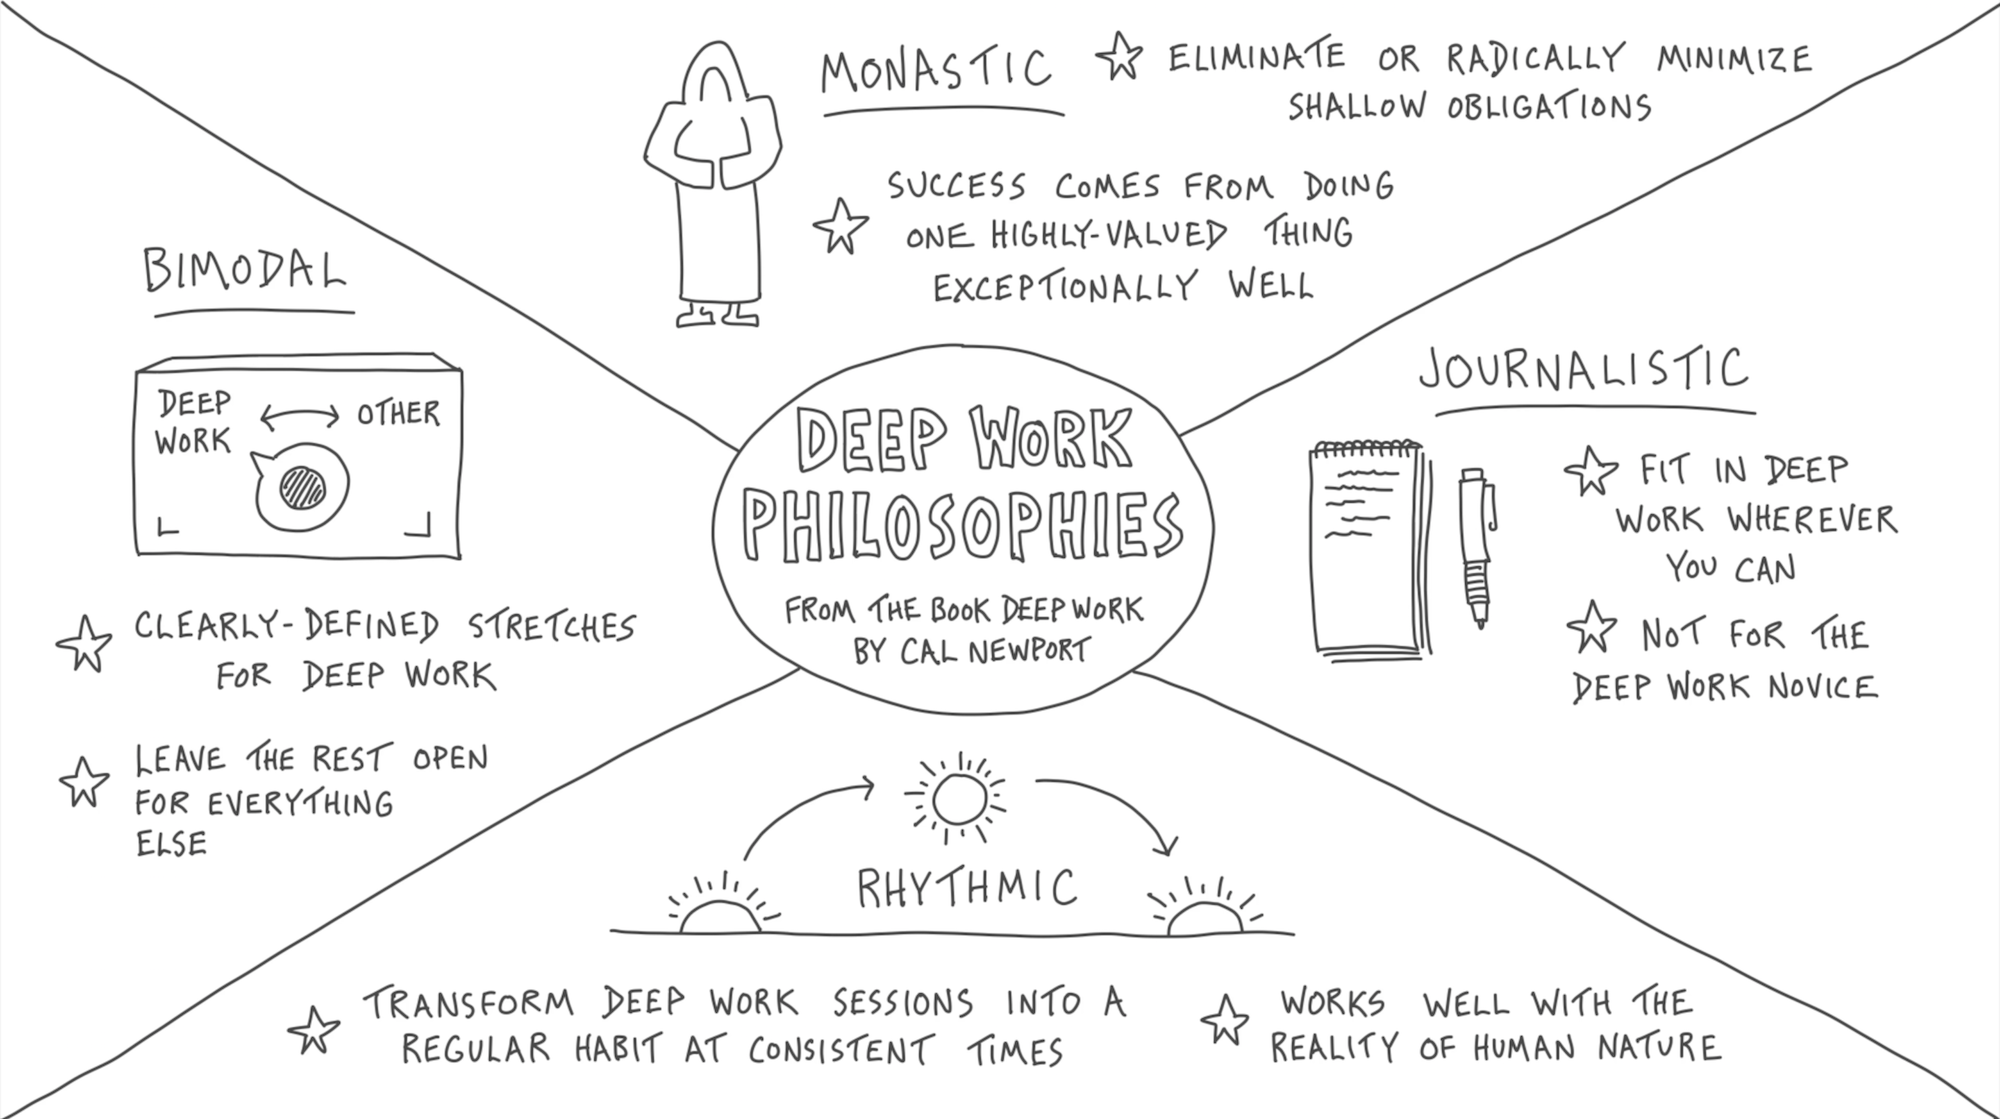 MONASTIC
ELIMINATE OR RADICALLY MINIMIZE
SHALLOW OBLIGATIONS
SUCCESS COMES FROM DOING
ONE HIGHLY-VALUED THING
EXCEPTIONALLY WELL
BIMODAL
DEEP
WORK
OTHER
CLEARLY-DEFINED STRETCHES
FOR DEEP WORK
LEAVE THE REST OPEN
FOR EVERYTHING
ELSE
DEEP WORK
PHILOSOPHIES
FROM THE BOOK DEEP WORK
BY CAL NEWPORT
JOURNALISTIC
FIT IN DEEP
WORK WHEREVER
YOU CAN
NOT FOR THE
DEEP WORK NOVICE
RHYTHMIC
TRANSFORM DEEP WORK SESSIONS INTO A
REGULAR HABIT AT CONSISTENT TIMES
WORKS WELL WITH THE
REALITY OF HUMAN NATURE